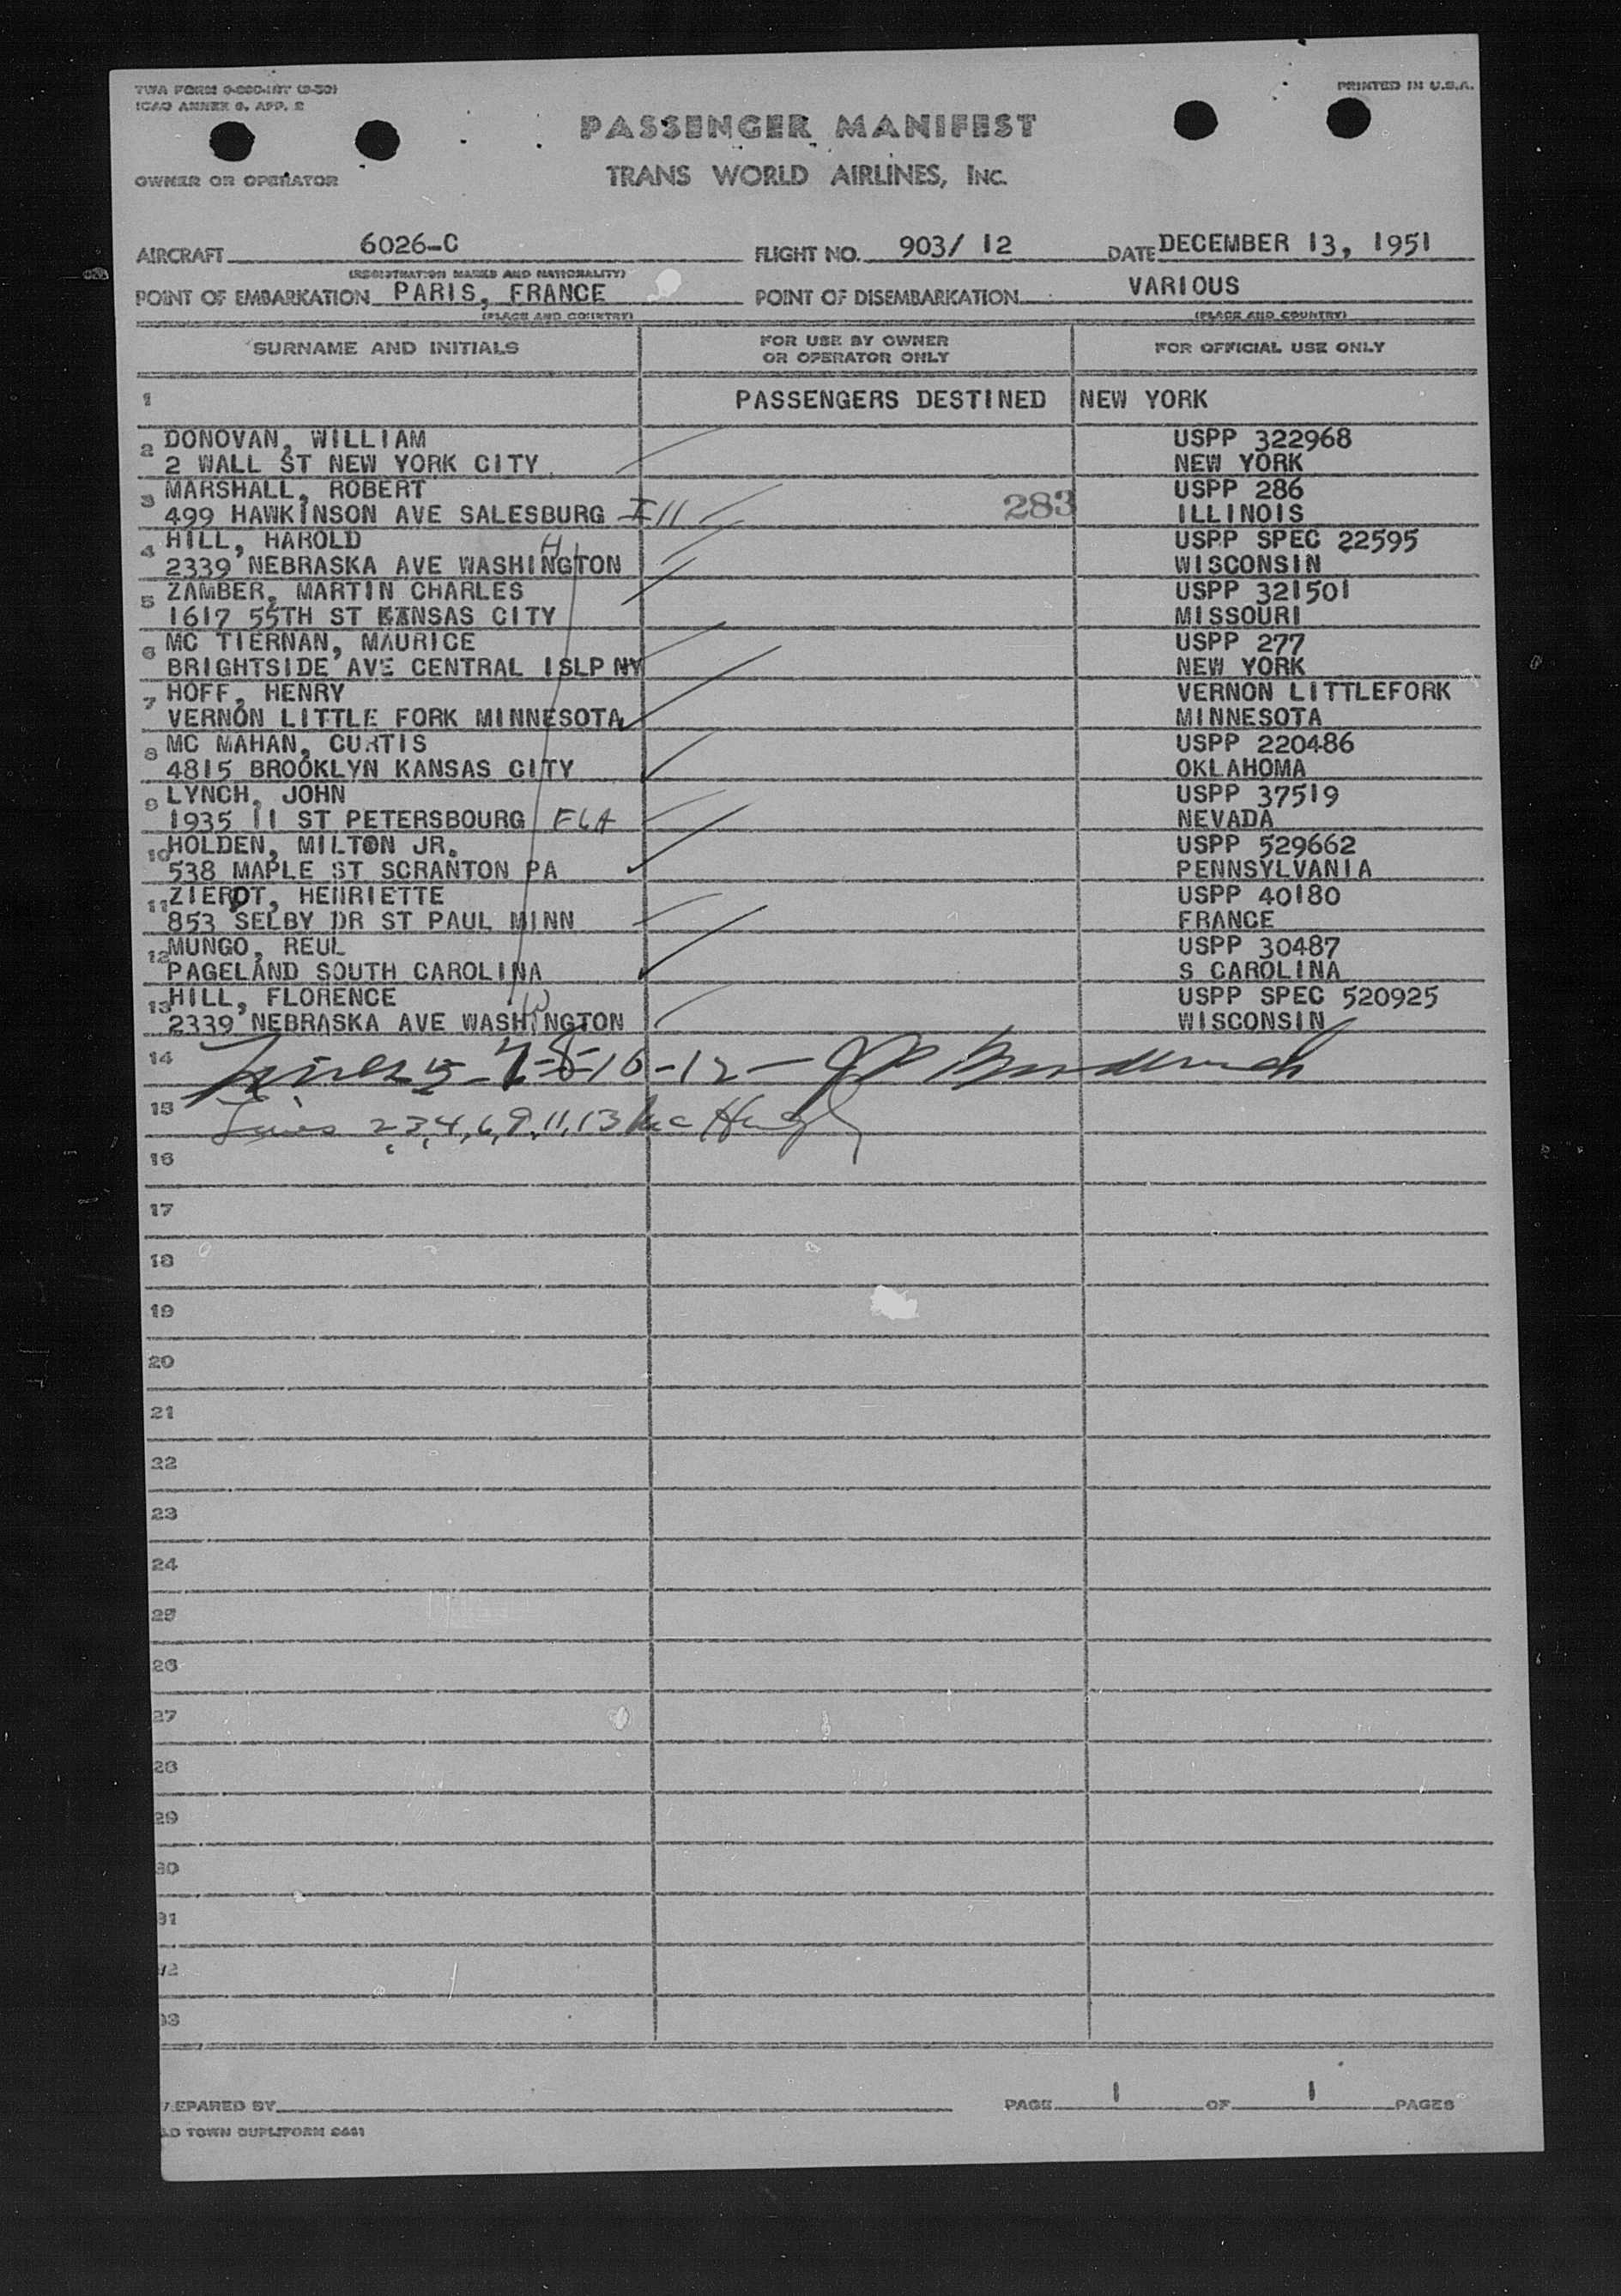 TWA FORM
ICAO ANNEX 9, APP. 2
PRINTED IN U.S.A.
PASSENGER MANIFEST
OWNER OR OPERATOR
TRANS WORLD AIRLINES, INC.
AIRCRAFT 6026-C FLIGHT NO. 903/ 12 DATE DECEMBER 13, 1951
(REGISTRATION MARKS AND NATIONALITY)
POINT OF EMBARKATION PARIS, FRANCE POINT OF DISEMBARKATION VARIOUS
(PLACE AND COUNTRY) (PLACE AND COUNTRY)
SURNAME AND INITIALS FOR USE BY OWNER OR OPERATOR ONLY FOR OFFICIAL USE ONLY
1 PASSENGERS DESTINED NEW YORK
2 DONOVAN, WILLIAM USPP 322968
2 WALL ST NEW YORK CITY NEW YORK
3 MARSHALL, ROBERT USPP 286
499 HAWKINSON AVE SALESBURG Ill 283 ILLINOIS
4 HILL, HAROLD H USPP SPEC 22595
2339 NEBRASKA AVE WASHINGTON WISCONSIN
5 ZAMBER, MARTIN CHARLES USPP 321501
1617 55TH ST KANSAS CITY MISSOURI
6 MC TIERNAN, MAURICE USPP 277
BRIGHTSIDE AVE CENTRAL ISLP NY NEW YORK
7 HOFF, HENRY VERNON LITTLEFORK
VERNON LITTLE FORK MINNESOTA MINNESOTA
8 MC MAHAN, CURTIS USPP 220486
4815 BROOKLYN KANSAS CITY OKLAHOMA
9 LYNCH, JOHN USPP 37519
1935 11 ST PETERSBOURG FLA NEVADA
10 HOLDEN, MILTON JR. USPP 529662
538 MAPLE ST SCRANTON PA PENNSYLVANIA
11 ZIERDT, HENRIETTE USPP 40180
853 SELBY DR ST PAUL MINN FRANCE
12 MUNGO, REUL USPP 30487
PAGELAND SOUTH CAROLINA S CAROLINA
13 HILL, FLORENCE W USPP SPEC 520925
2339 NEBRASKA AVE WASHINGTON WISCONSIN
14 Lines 5-7-8-10-12-
15 Lines 2,3,4,6,9,11,13
16
17
18
19
20
21
22
23
24
25
26
27
28
29
30
31
32
33
PREPARED BY PAGE 1 OF 1 PAGES
TOWN DUPLIFORM